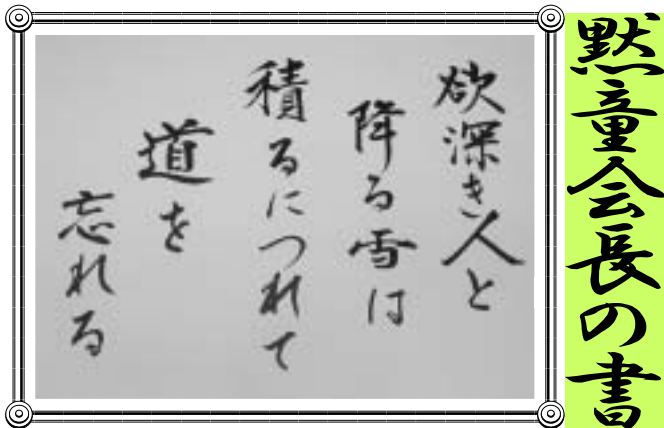 黙童会長の書
欲深き人と
降る雪は
積るにつれて
道を
忘れる